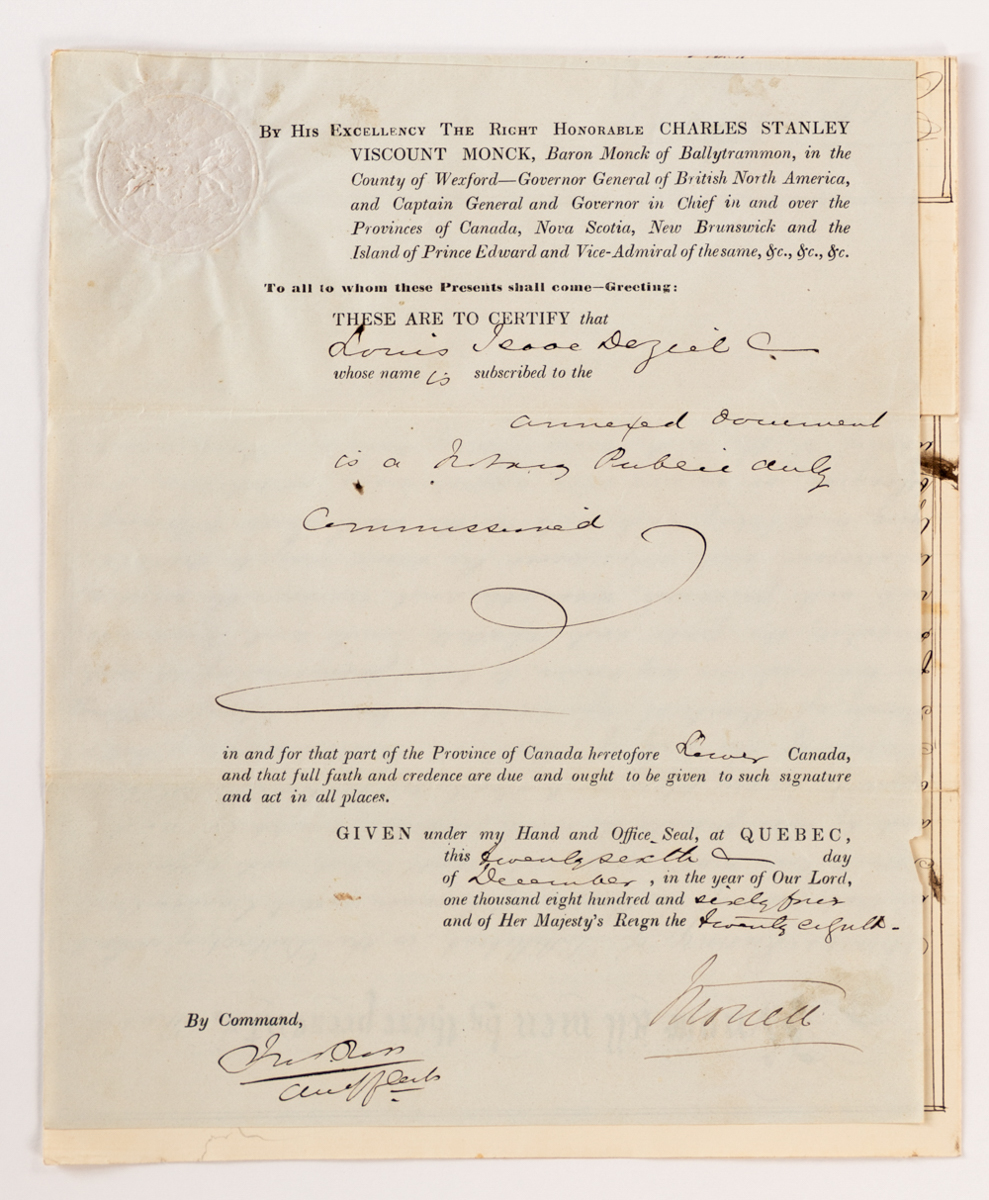 By His Excellency The Right Honorable CHARLES STANLEY
VISCOUNT MONCK, Baron Monck of Ballytrammon, in the
County of Wexford—Governor General of British North America,
and Captain General and Governor in Chief in and over the
Provinces of Canada, Nova Scotia, New Brunswick and the
Island of Prince Edward and Vice-Admiral of the same, &c., &c., &c.
To all to whom these Presents shall come—Greeting:
THESE ARE TO CERTIFY that
Louis Isaac Deziel
whose name is subscribed to the
annexed document
is a Notary Public duly
Commissioned
in and for that part of the Province of Canada heretofore Lower Canada,
and that full faith and credence are due and ought to be given to such signature
and act in all places.
GIVEN under my Hand and Office Seal, at QUEBEC,
this twenty sixth day
of December, in the year of Our Lord,
one thousand eight hundred and sixty four
and of Her Majesty's Reign the twenty eighth-
Monck
By Command,